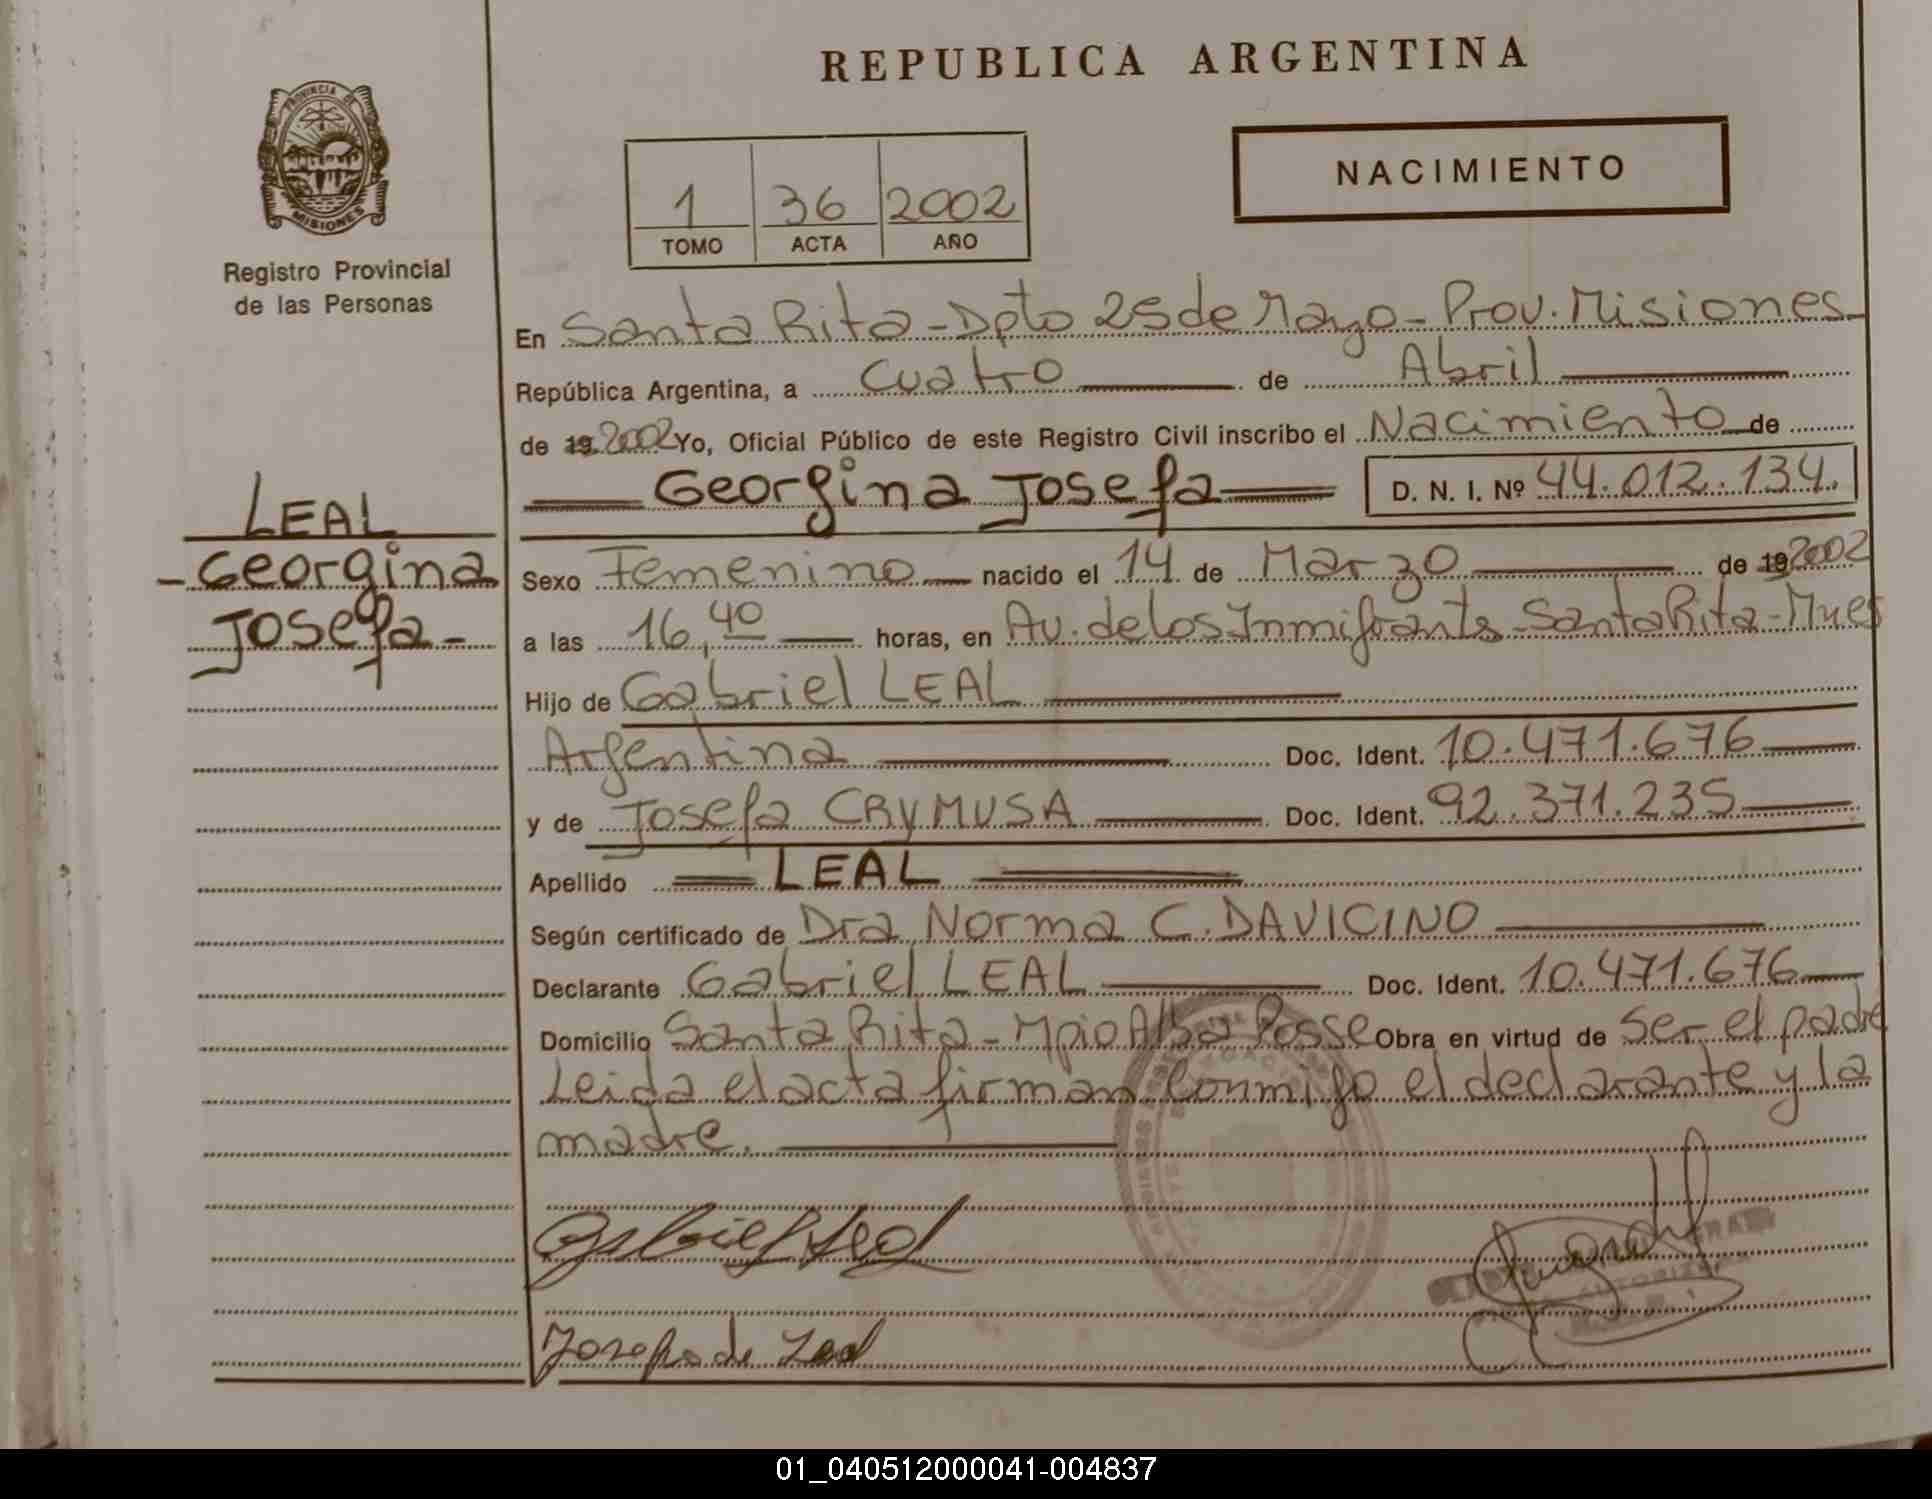 REPUBLICA ARGENTINA
PROVINCIA DE
MISIONES
Registro Provincial
de las Personas
1 36 2002
TOMO ACTA AÑO
NACIMIENTO
En Santa Rita - Dpto 25 de Mayo - Prov. Misiones
República Argentina, a Cuatro de Abril
de 19 2002 Yo, Oficial Público de este Registro Civil inscribo el Nacimiento de
Georgina Josefa D. N. I. Nº 44.012.134.
LEAL
- Georgina
Josefa -
Sexo Femenino nacido el 14 de Marzo de 19 2002
a las 16,40 horas, en Av. de los Inmigrantes - Santa Rita - Mnes
Hijo de Gabriel LEAL
Argentina Doc. Ident. 10.471.676
y de Josefa CRYMUSA Doc. Ident. 92.371.235
Apellido LEAL
Según certificado de Dra Norma C. DAVICINO
Declarante Gabriel LEAL Doc. Ident. 10.471.676
Domicilio Santa Rita - Mpio Alba Posse Obra en virtud de Ser el padre
Leida el acta firman conmigo el declarante y la
madre.
Gabriel Leal
Josefa de Leal
01_040512000041-004837